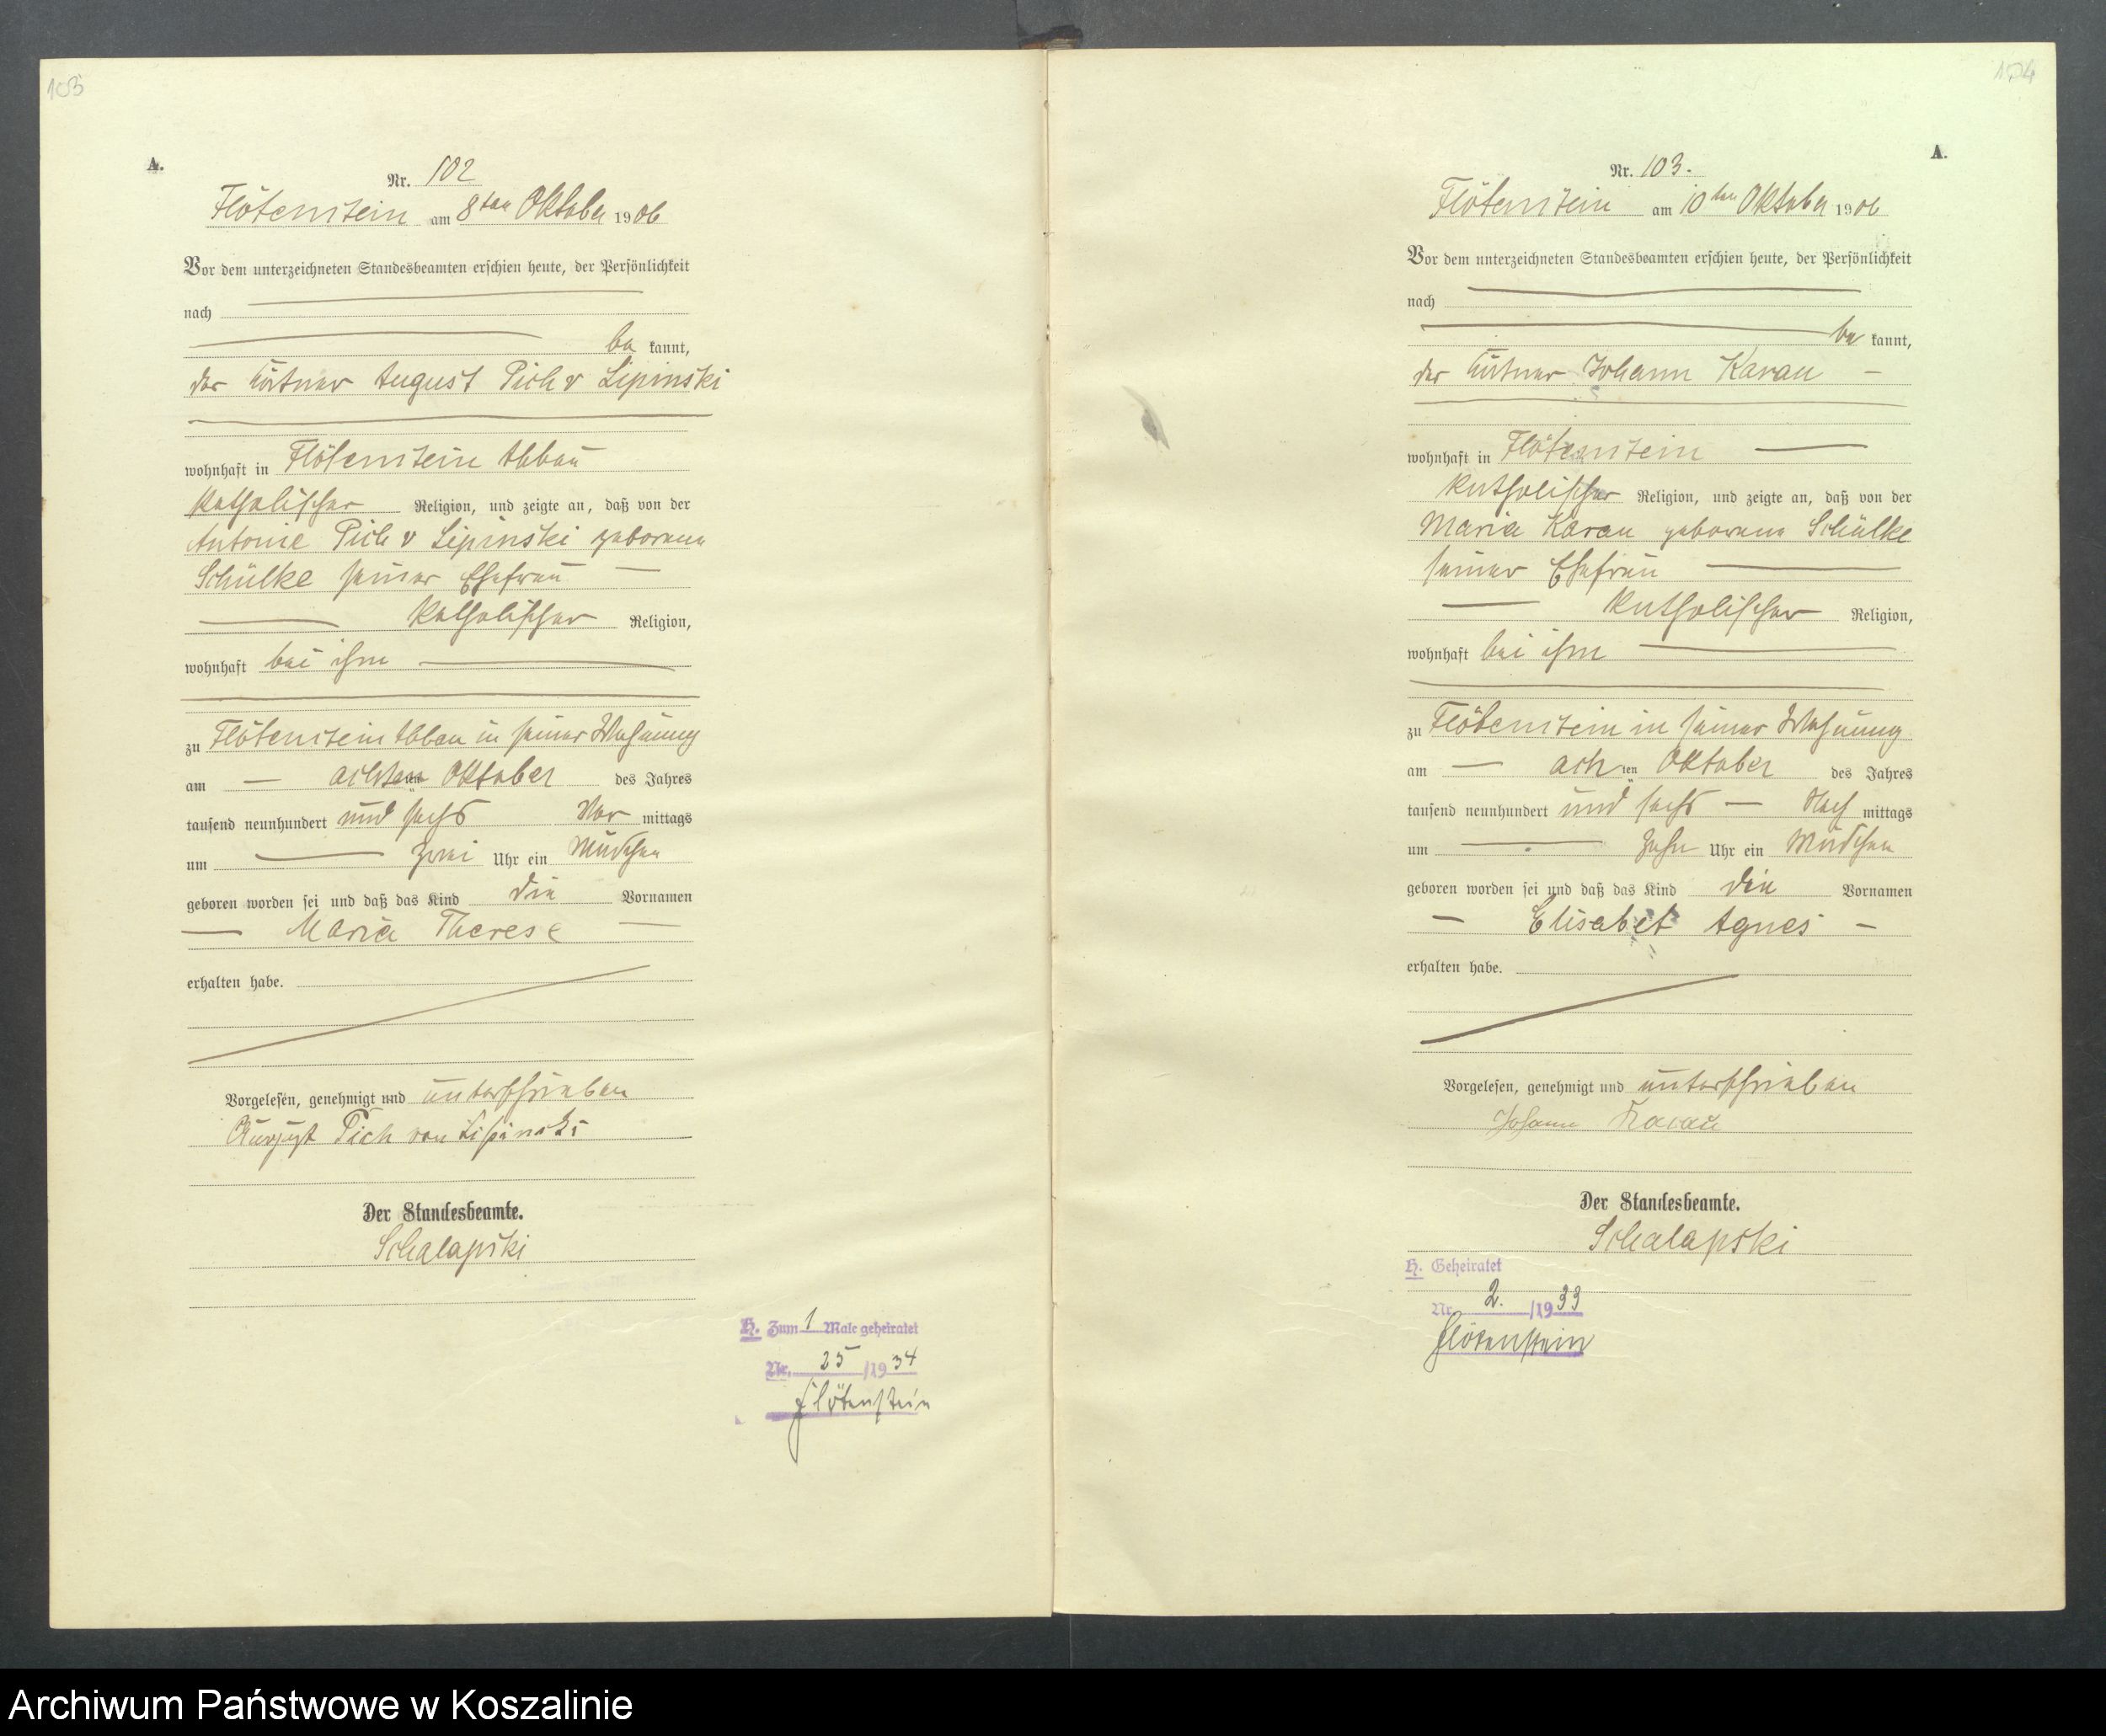 103
A.
Nr. 102
Flötenstein am 8ten Oktober 1906
Vor dem unterzeichneten Standesbeamten erschien heute, der Persönlichkeit
nach
be kannt,
der August Pich v Lipinski
wohnhaft in Flötenstein Abbau
katholischer Religion, und zeigte an, daß von der
Antonie Pich v Lipinski geborene
Schülke seiner Ehefrau
katholischer Religion,
wohnhaft bei ihm
zu Flötenstein Abbau in seiner Wohnung
am achten Oktober des Jahres
tausend neunhundert und sechs Vor mittags
um zwei Uhr ein Mädchen
geboren worden sei und daß das Kind die Vornamen
Maria Therese
erhalten habe.
Vorgelesen, genehmigt und unterschrieben
August Pich von Lipinski
Der Standesbeamte.
Schalapski
H. Zum 1 Male geheiratet
Nr. 25 /1934
Flötenstein
104
A.
Nr. 103.
Flötenstein am 10ten Oktober 1906
Vor dem unterzeichneten Standesbeamten erschien heute, der Persönlichkeit
nach
be kannt,
der Johann Karau
wohnhaft in Flötenstein
katholischer Religion, und zeigte an, daß von der
Maria Karau geborene Schülke
seiner Ehefrau
katholischer Religion,
wohnhaft bei ihm
zu Flötenstein in seiner Wohnung
am achten Oktober des Jahres
tausend neunhundert und sechs Nach mittags
um zehn Uhr ein Mädchen
geboren worden sei und daß das Kind die Vornamen
Elisabet Agnes
erhalten habe.
Vorgelesen, genehmigt und unterschrieben
Johann Karau
Der Standesbeamte.
Schalapski
H. Geheiratet
Nr. 2. /1933
Flötenstein
Archiwum Państwowe w Koszalinie